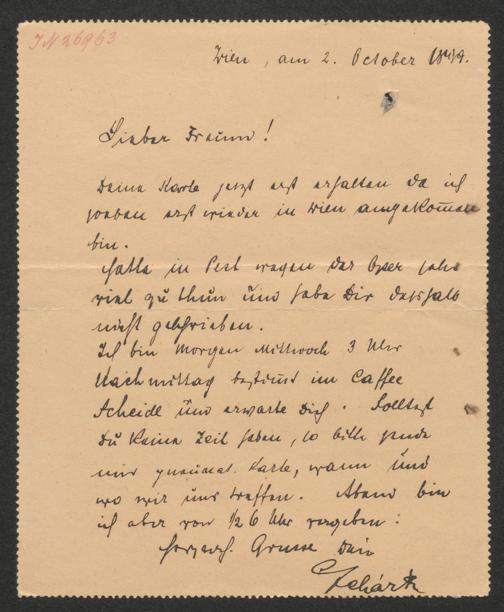 IN 26963
Wien, am 2. October
Lieber Freund!
Deine Karte jetzt erst erhalten da ich
soeben erst wieder in Wien angekommen
bin.
Hatte in Pest wegen der Oper sehr
viel zu thun und habe Dir deshalb
nicht geschrieben.
Ich bin morgen Mittwoch 3 Uhr
Nachmittag bestimmt im Caffee
Scheidl und erwarte Dich. Solltest
Du keine Zeit haben, so bitte sende
mir pneumat. Karte, wann und
wo wir uns treffen. Abend bin
ich aber von 1/2 6 Uhr vergeben:
Grüsse Dein